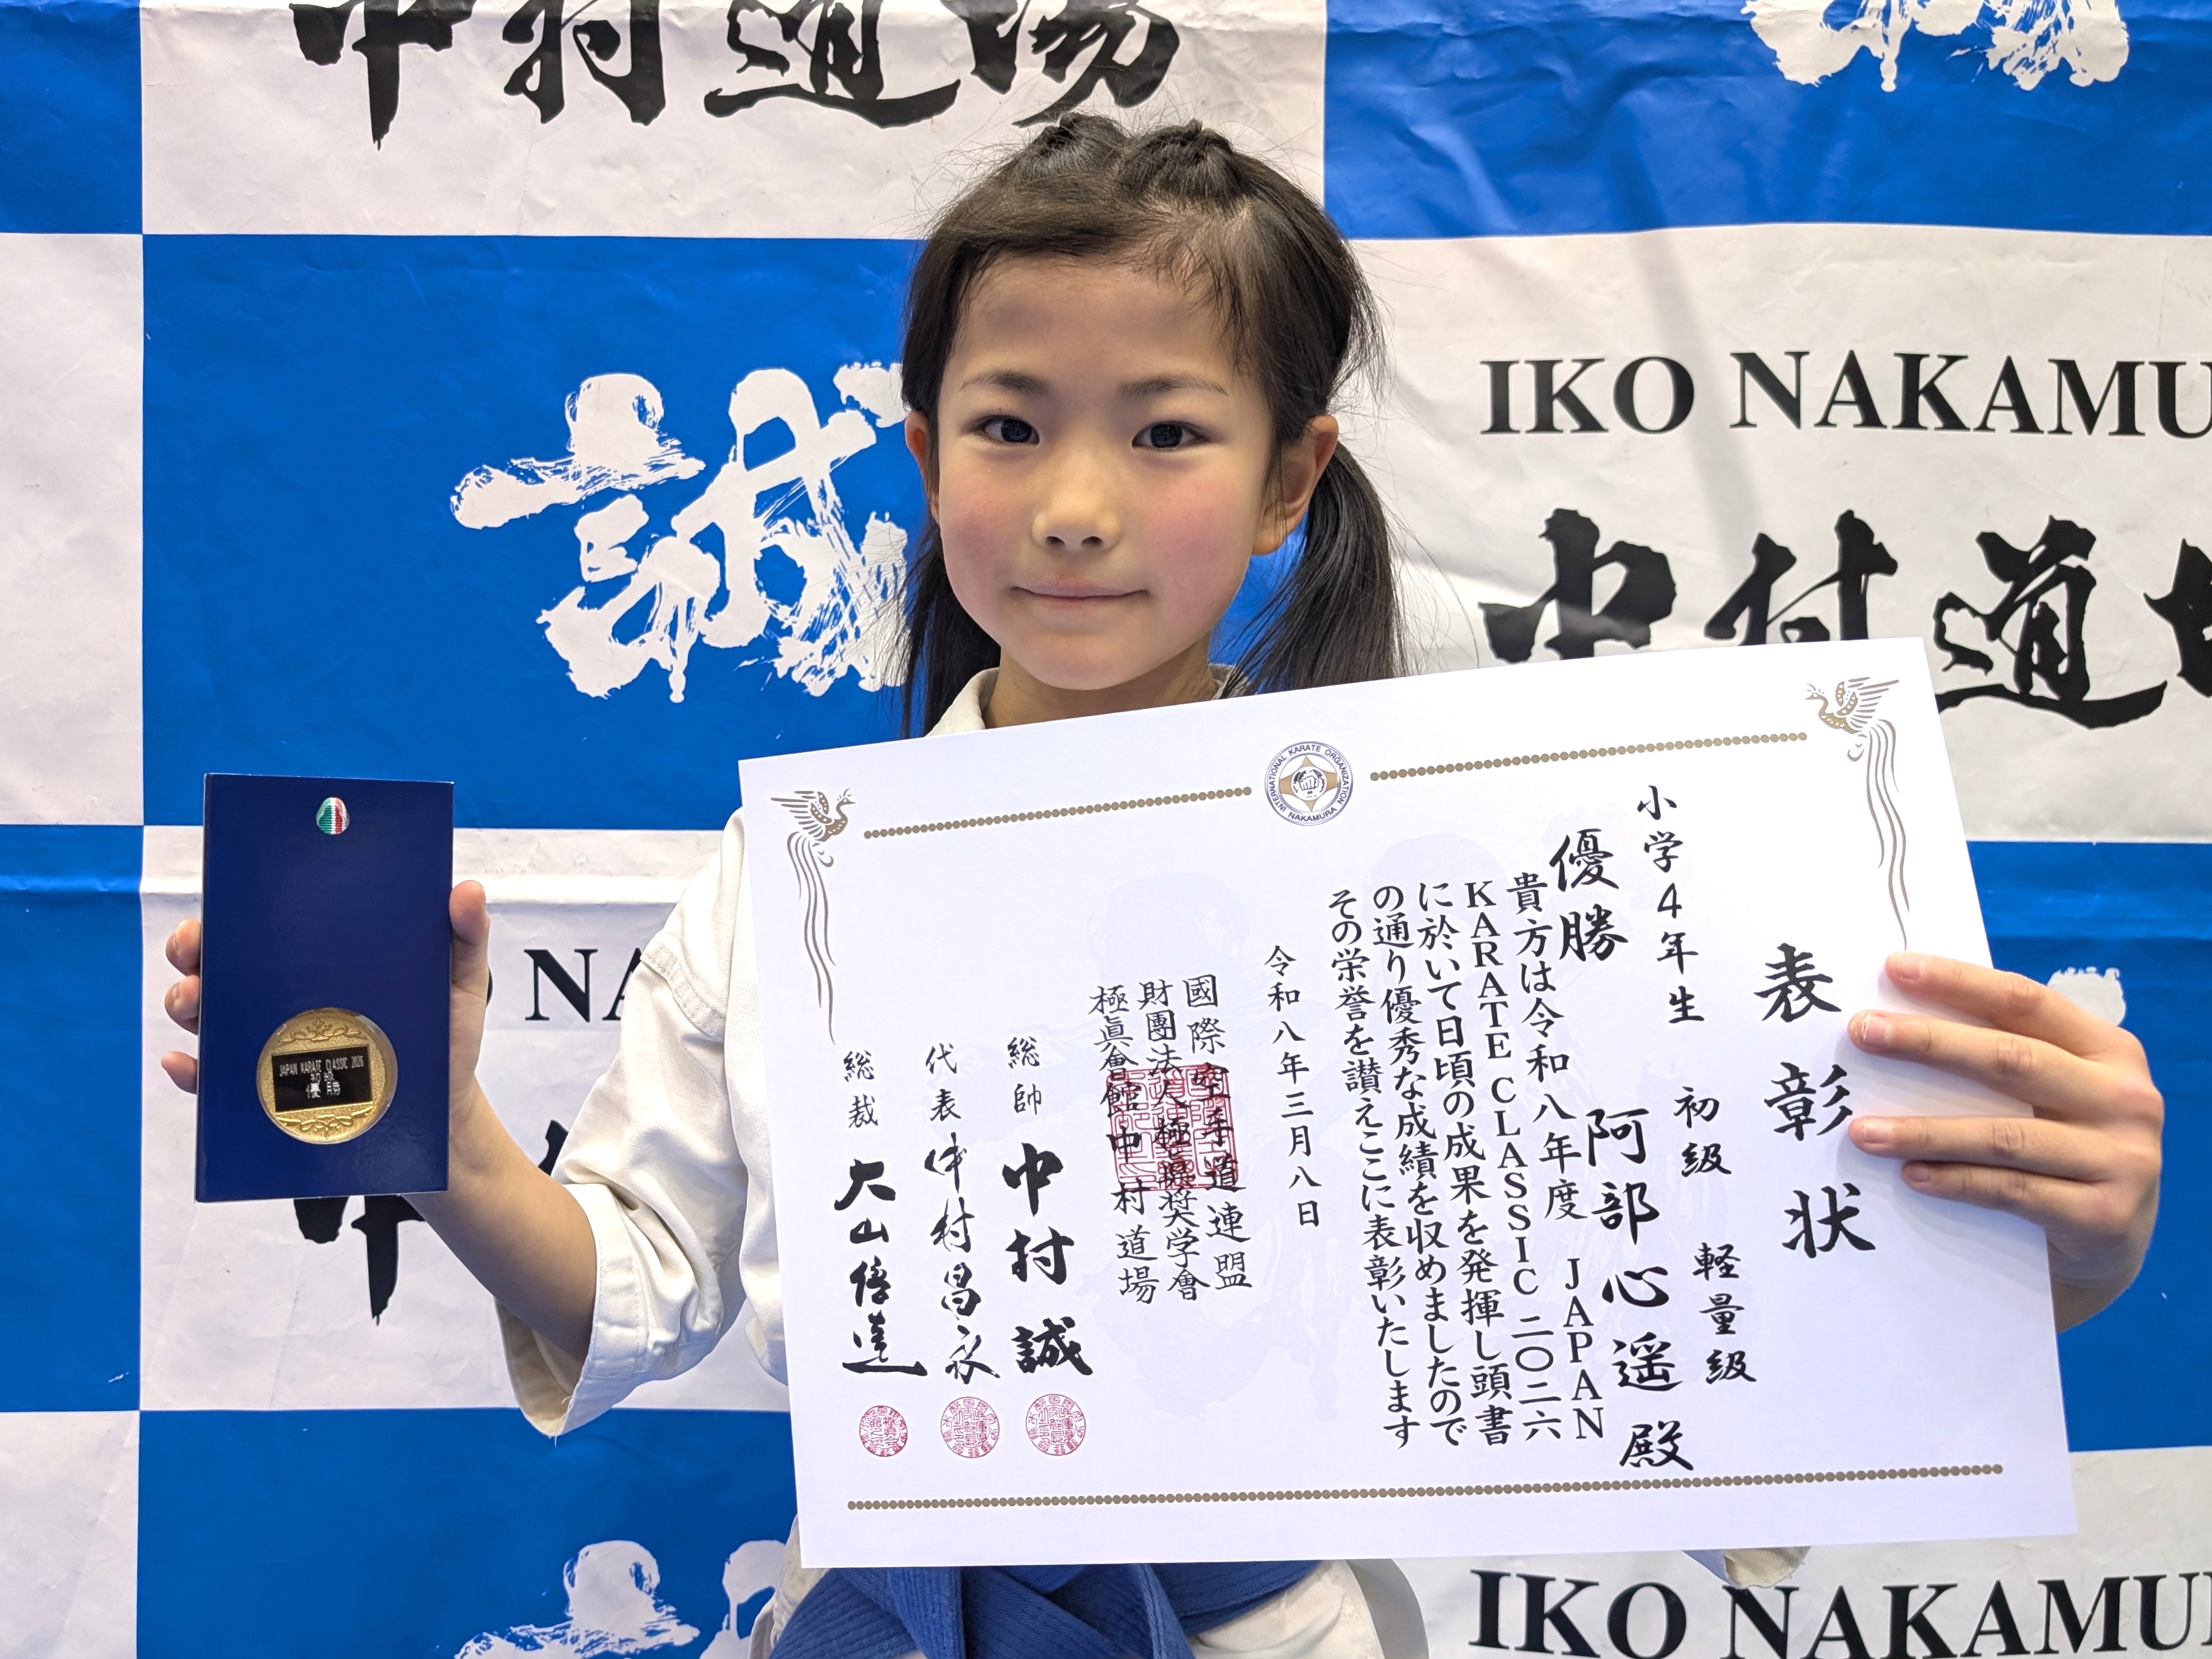 中村道場
誠
IKO NAKAMU
中村道
誠
JAPAN KARATE CLASSIC 2026
初級
優勝
INTERNATIONAL KARATE ORGANIZATION
NAKAMURA
表彰状
小学4年生 初級 軽量級
優勝 阿部心遥殿
貴方は令和八年度 JAPAN
KARATE CLASSIC 二〇二六
に於いて日頃の成果を発揮し頭書
の通り優秀な成績を収めましたので
その栄誉を讃えここに表彰いたします
令和八年三月八日
國際空手道連盟
財團法人極真奨学會
極眞會館中村道場
総帥 中村誠
代表 中村昌永
総裁 大山倍達
NA
中
誠
IKO NAKAMU